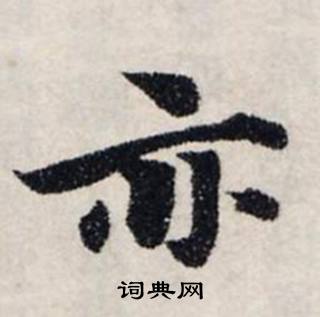 亦
词典网